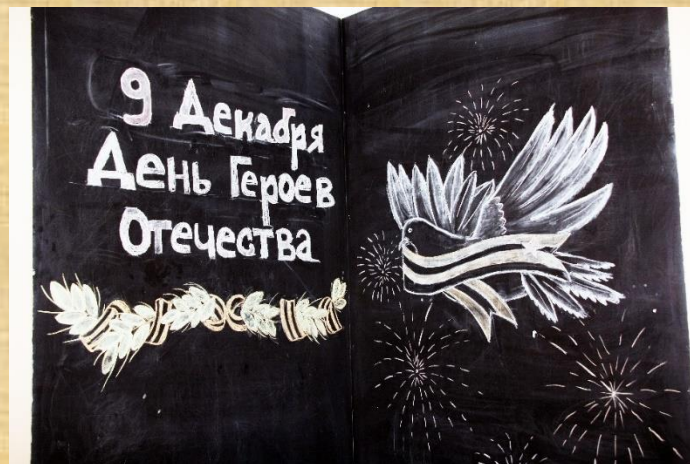 9 Декабря
День Героев
Отечества